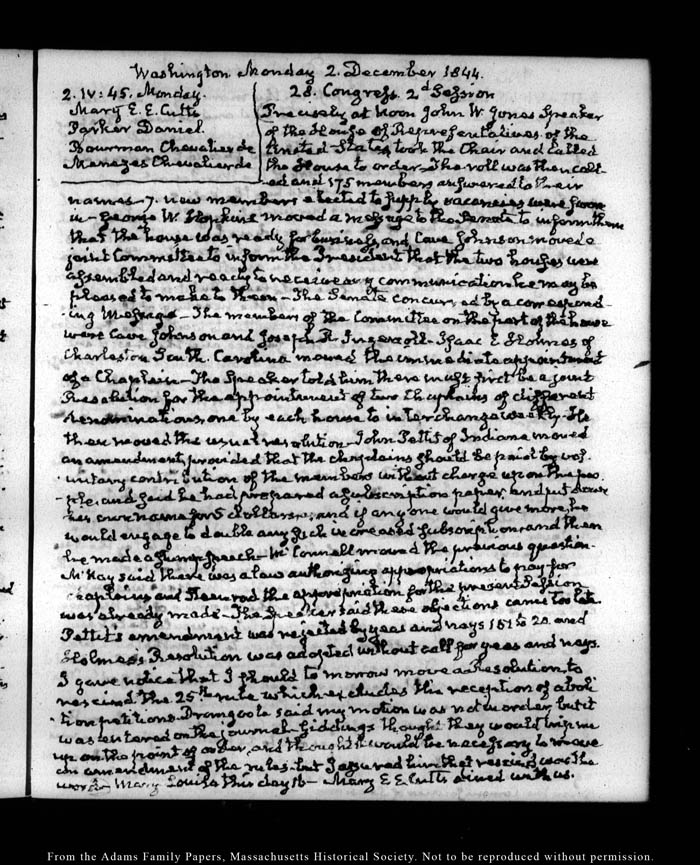 Washington Monday 2. December 1844.
2. IV: 45. Monday.
Mary E. E. Cutts
Parker Daniel.
Bourman Chevalier de
Menezes Chevalier de
28. Congress 2d Session
Precisely at Noon John W. Jones Speaker
of the House of Representatives of the
United States took the Chair and called
the House to order. The roll was then call-
-ed and 175 members answered to their
names. 7. new members elected to supply vacancies were sworn
in - George W. Hopkins moved a message to the Senate to inform them
that the house was ready for business, and Cave Johnson moved a
joint Committee to inform the President that the two houses were
assembled and ready to receive any communication he may be
pleased to make to them - The Senate concurred by a correspond-
-ing Message - The members of the Committee on the part of the house
were Cave Johnson and Joseph R. Ingersoll - Isaac E Holmes of
Charleston South Carolina moved the immediate appointment
of a Chaplain - The Speaker told him there must first be a joint
Resolution for the appointment of two Chaplains of different
denominations, one by each house to interchange weekly. He
then moved the usual resolution - John Pettit of Indiana moved
an amendment, provided that the chaplains should be paid by vol-
-untary contribution of the members without charge upon the peo-
-ple, and said he had prepared a subscription paper, and put down
his own name for 5 dollars, and if any one would give more, he
would engage to double any such increased subscription, and then
he made a speech - McConnell moved the previous question.
McKay said there was a law authorizing appropriations to pay for
Chaplains and the appropriation for the present Session
was already made - The Speaker said these objections came too late.
Pettit's amendment was rejected by yeas and nays 151 to 20. and
Holmes's Resolution was adopted without call for yeas and nays.
I gave notice that I should to morrow move a Resolution to
rescind the 25th rule which excludes the reception of aboli-
-tion petitions. Dromgoole said my motion was not in order, but it
was entered on the journal. Giddings thought they would trip me
up on the point of order, and thought it would be necessary to move
an amendment of the rules. but I assured him that rescind was the
word. Mary Louisa this day 16 - Mary E E Cutts dined with us.
From the Adams Family Papers, Massachusetts Historical Society. Not to be reproduced without permission.